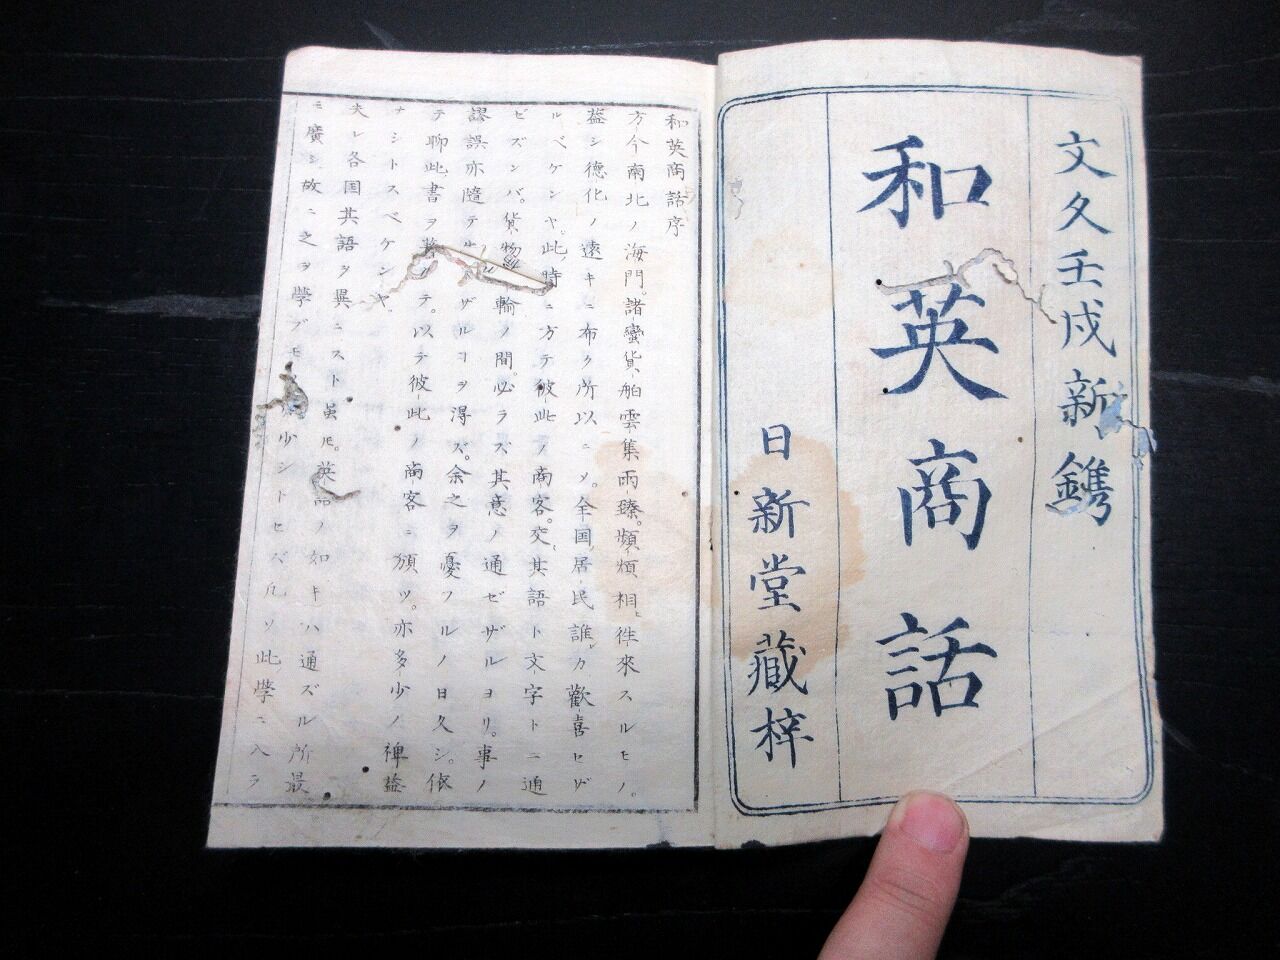 文久壬戌新鐫
和英商話
日新堂藏梓
和英商話序
方今南北ノ海門。諸蠻貨舶雲集雨臻。頻煩相往來スルモノ。
益シ德化ノ遠キニ布ク所以ニソ。全国居民誰カ歡喜セザ
ルベケンヤ。此時ニ方テ彼此ノ商客。交其語ト文字トニ通
ゼズンバ。貨物 輸ノ間。必ラズ其意ノ通ゼザルヨリ。事ノ
謬誤亦隨テ ザルヿヲ得ズ。余之ヲ憂フルノ日久シ。依
テ聊此書ヲ テ。以テ彼此ノ商客ニ頒ツ。亦多少ノ裨益
ナシトスベケンヤ。
夫レ各国其語ヲ異ニスト虽𪜈。英語ノ如キハ通ズル所最
モ廣シ故ニ之ヲ學ブモ 少シトセズ 凡ソ此學ニ入ラ